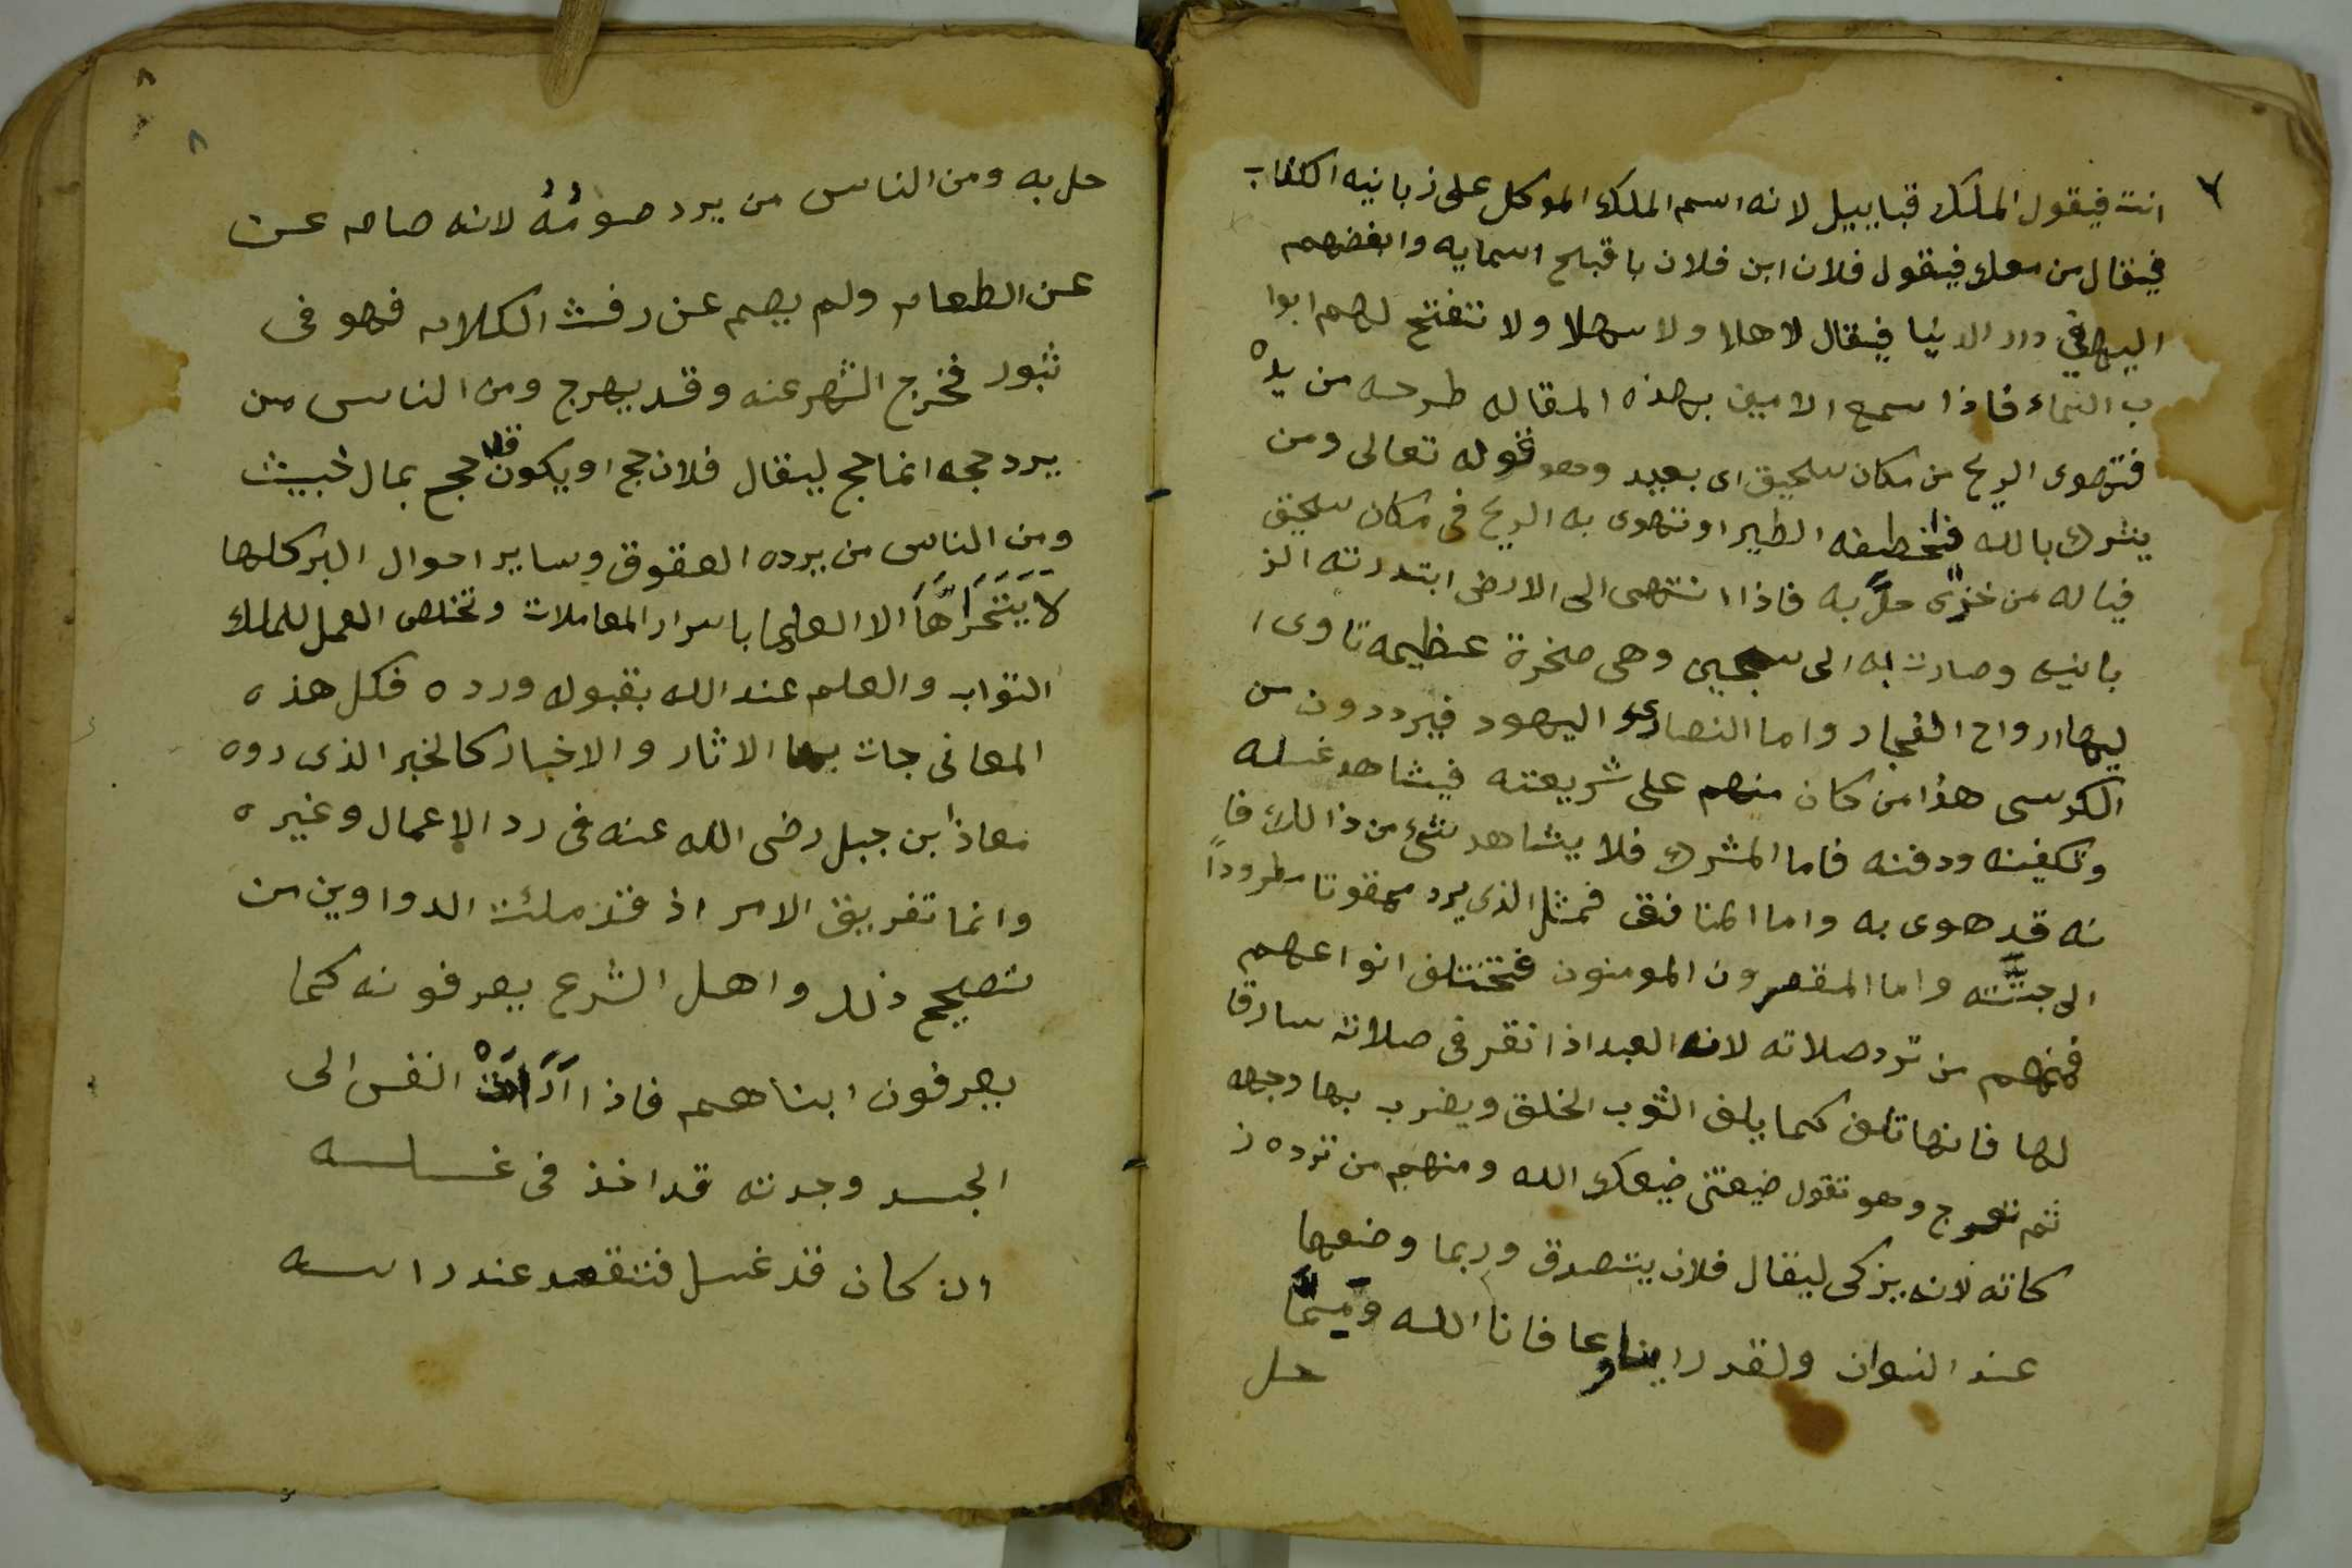 ٧
انت فيقول الملك قبابيل لانه اسم الملك الموكل على زبانيه العذاب
فيقال من معك فيقول فلان ابن فلان باقبح اسمايه وابغضهم
اليه فى دار الدنيا فيقال لا هلا ولا سهلا ولا تتفتح لهم ابوا
ب السماء فاذا سمع الامين بهذه المقاله طرحه من يده
فتهوى الريح من مكان سحيق اى بعيد وهو قوله تعالى ومن
يشرك بالله فتخطفه الطير او تهوى به الريح فى مكان سحيق
فياله من خزى حل به فاذا انتهى الى الارض ابتدرته الز
بانيه وصارت به الى سجين وهى صخرة عظيمه تاوى ا
ليها ارواح الفجار واما النصارى واليهود فيرددون من
الكرسى هذا من كان منهم على شريعته فيشاهد غسله
وتكفينه ودفنه فاما المشرك فلا يشاهد شىء من ذالك فا
نه قد هوى به واما المنافق فمثل الذى يرد ممقوتا مطروداً
الى جثته واما المقصرون المومنون فتختلف انواعهم
فمنهم من ترد صلاته لانه العبد اذا نقر فى صلاته سارقا
لها فانها تلف كما يلف الثوب الخلق ويضرب بها وجهه
ثم تعرج وهو تقول ضيعتنى ضيعك الله ومنهم من ترده ز
كاته لانه يزكى ليقال فلان يتصدق وربما وضعها
عند النسوان ولقد راينا وعافانا الله مما
حل
٨
٨
حل به ومن الناس من يرد صومُهُ لانه صام عن
عن الطعام ولم يصم عن رفث الكلام فهو فى
ثبور فخرج الشهر عنه وقد يهرج ومن الناس من
يرد حجه انما حج ليقال فلان حج او يكون قد حج بمال خبيث
ومن الناس من يرده العقوق وساير احوال البر كلها
لا يَتَحَرّاهَا الا العلما باسرار المعاملات وتخلص العمل للملك
التواب والعلم عند الله بقبوله ورده فكل هذه
المعانى جات بها الاثار والاخبار كالخبر الذى روه
معاذ ابن جبل رضى الله عنه فى رد الاعمال وغيره
وانما تفريق الامر اذ قد ملئت الدواوين من
تصحيح ذلك واهل الشرع يعرفونه كما
يعرفون ابناهم فاذا النفس الى
الجسد وجدته قد اخذ فى غسله
ان كان قد غسل فتقعد عند راسه